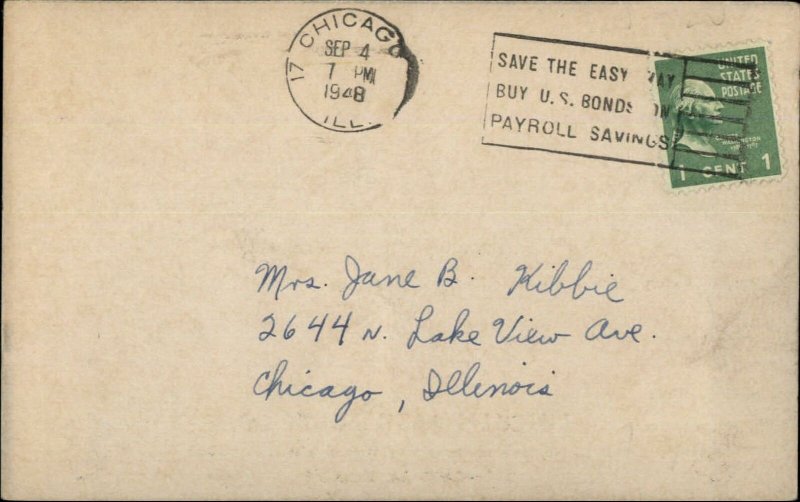 17 CHICAGO
SEP 4
7 PM
1948
ILL.
SAVE THE EASY WAY
BUY U.S. BONDS ON
PAYROLL SAVINGS
UNITED
STATES
POSTAGE
WASHINGTON
1 CENT 1
Mrs. Jane B. Kibbie
2644 N. Lake View Ave.
Chicago, Illenois